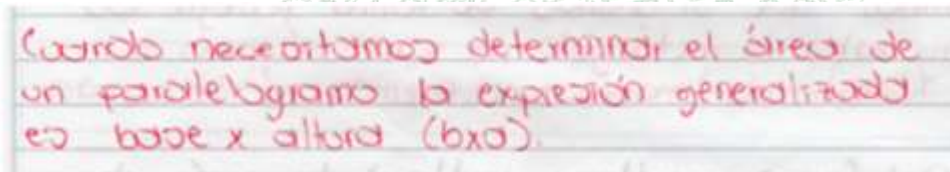 Cuando necesitamos determinar el área de
un paralelogramo la expresión generalizada
es base x altura (bxa).